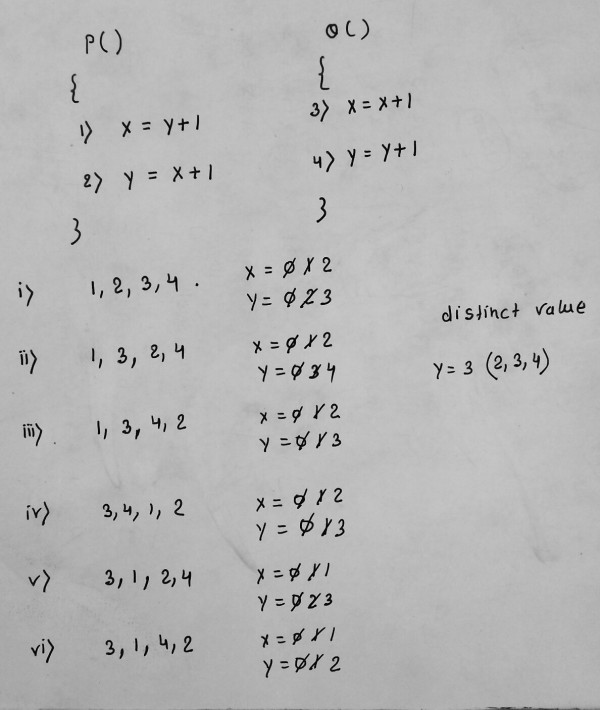 P()
{
1) x = y+1
2) y = x+1
}
Q()
{
3) x = x+1
4) y = y+1
}
i) 1, 2, 3, 4 . x = 0 1 2
y = 0 2 3
ii) 1, 3, 2, 4 x = 0 1 2
y = 0 3 4
iii) 1, 3, 4, 2 x = 0 1 2
y = 0 1 3
iv) 3, 4, 1, 2 x = 0 1 2
y = 0 1 3
v) 3, 1, 2, 4 x = 0 1 1
y = 0 2 3
vi) 3, 1, 4, 2 x = 0 1 1
y = 0 1 2
distinct value
y = 3 (2, 3, 4)